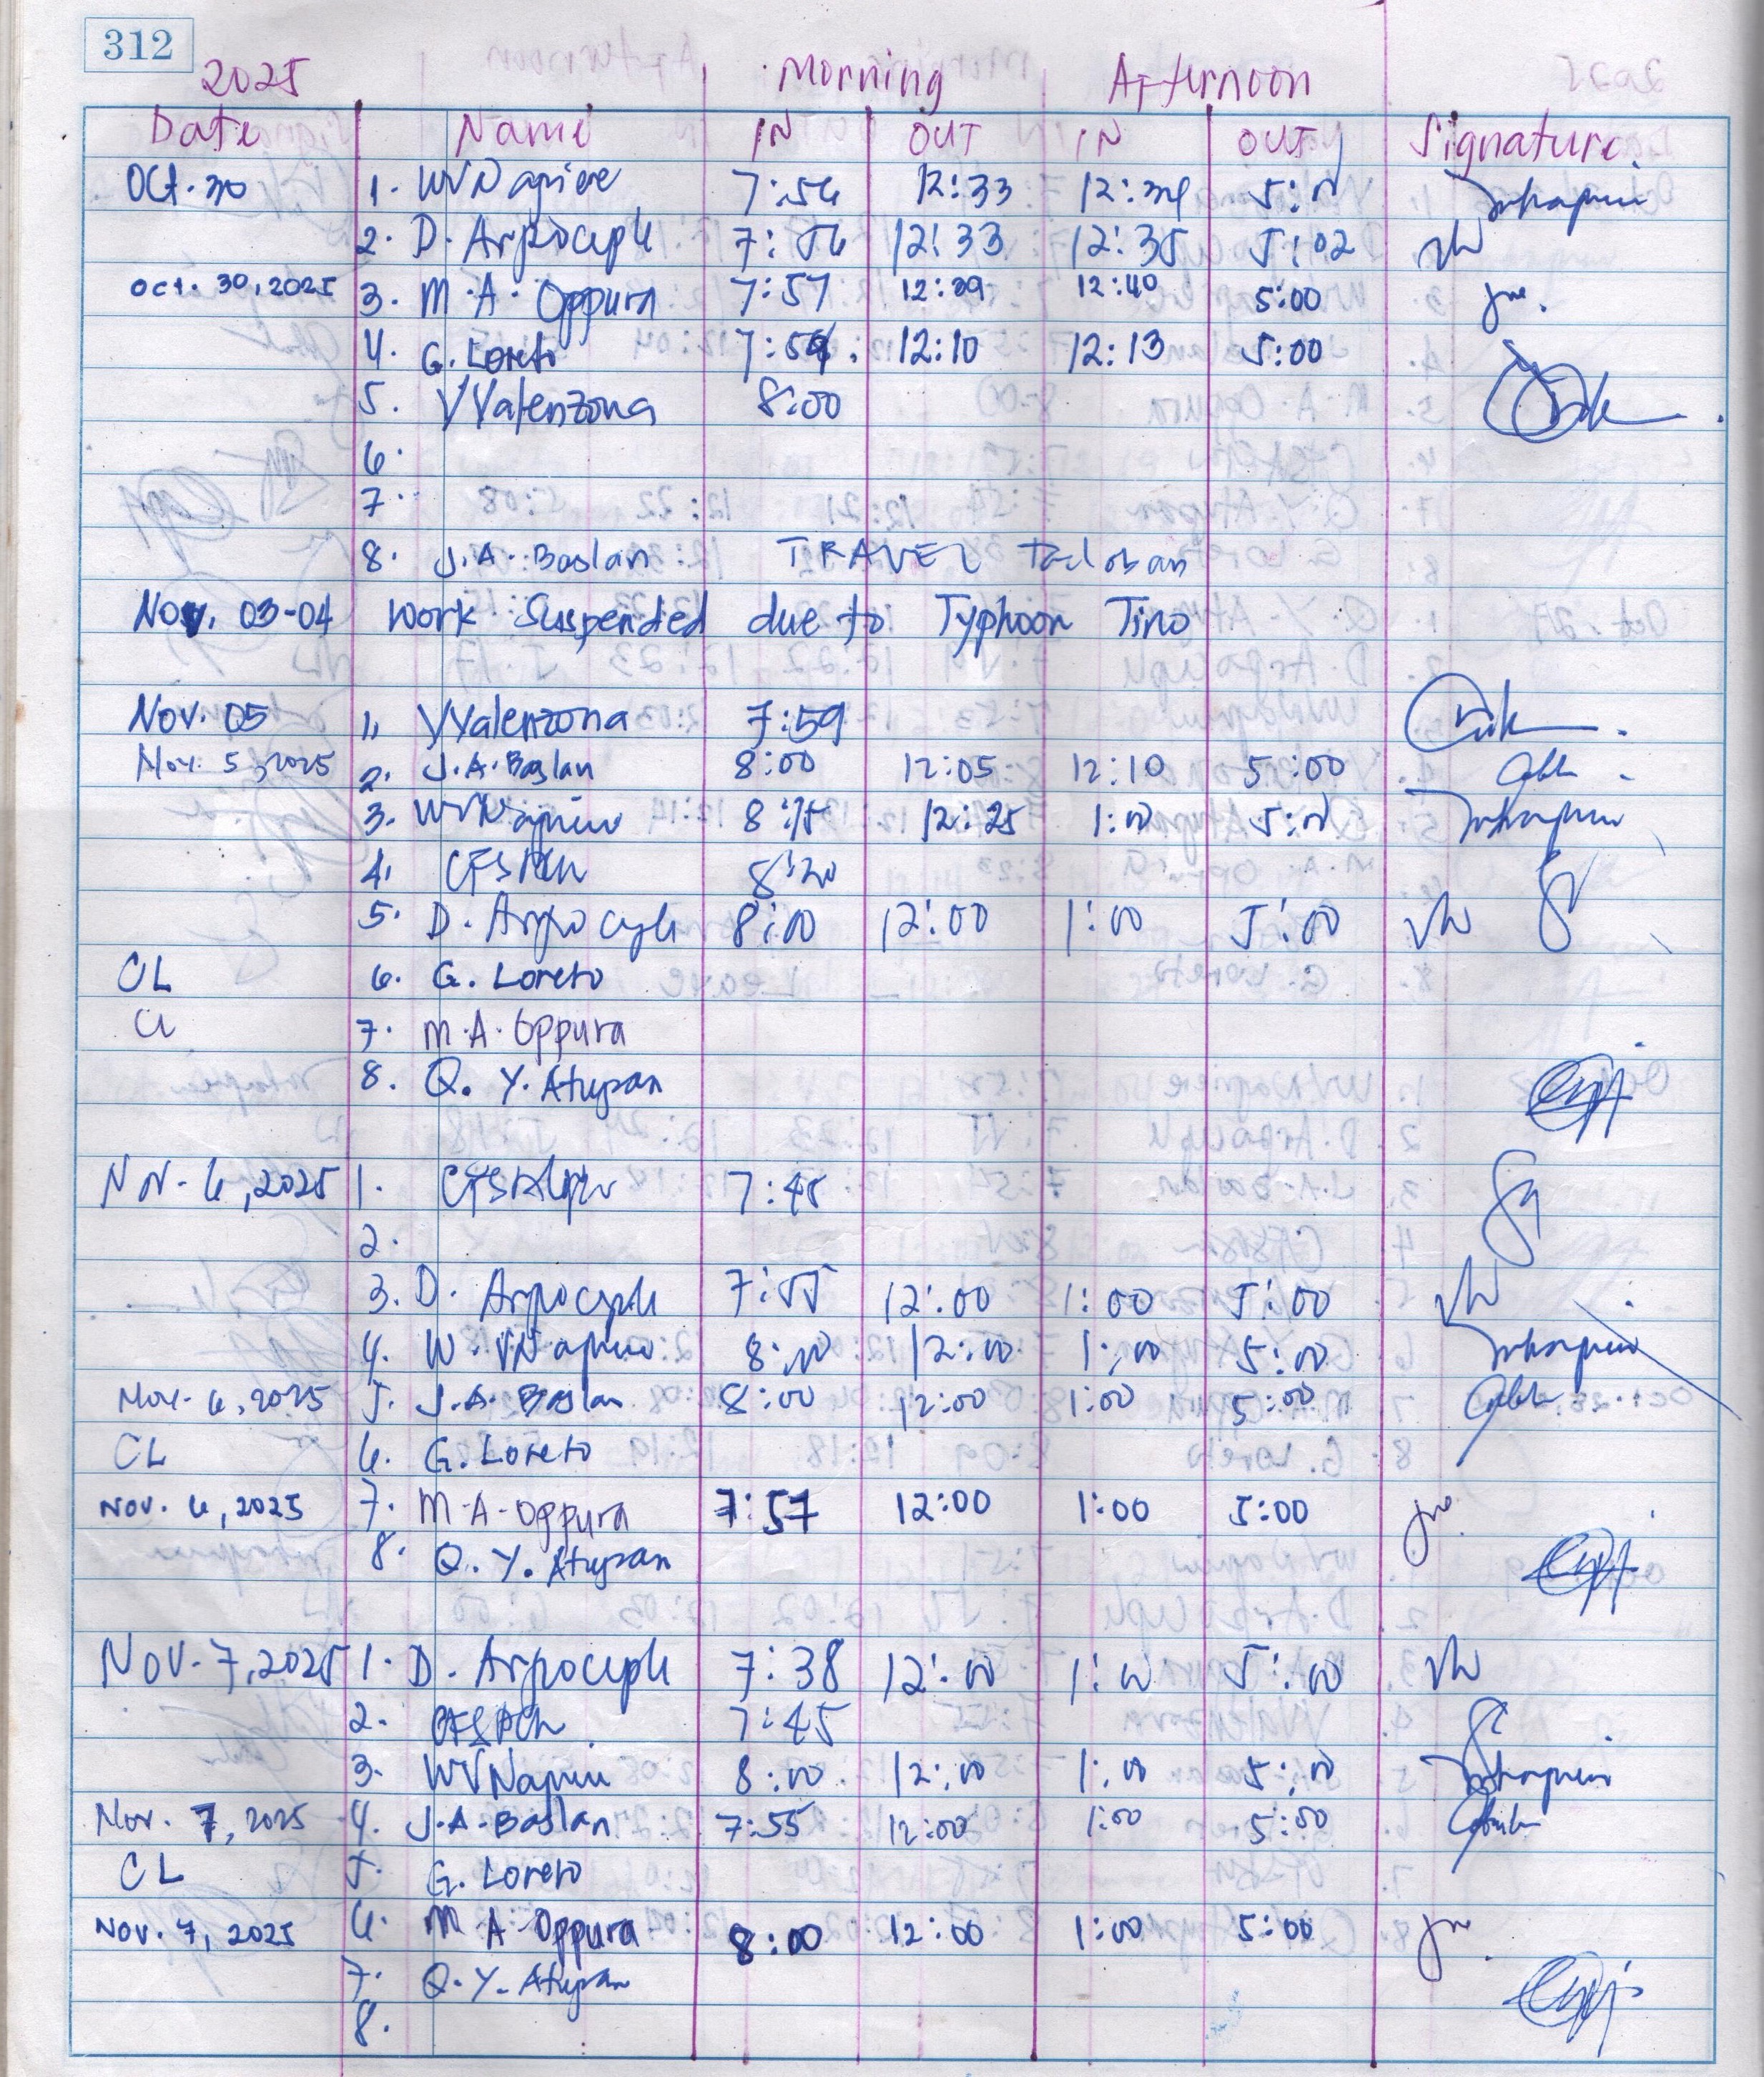 312
2025 Morning Afternoon
Date Name IN OUT IN OUT Signature
Oct. 30 1. WVNapiere 7:56 12:33 12:34 5:00
2. D. Arpoceple 7:56 12:33 12:35 5:02
Oct. 30, 2025 3. M.A. Oppura 7:57 12:39 12:40 5:00
4. G. Loreto 7:59 12:10 12:13 5:00
5. VValenzona 8:00
6.
7.
8. J.A. Baslan TRAVEL Tacloban
Nov. 03-04 Work Suspended due to Typhoon Tino
Nov. 05 1. VValenzona 7:59
Nov. 5, 2025 2. J.A. Baslan 8:00 12:05 12:10 5:00
3. 8:15 12:25 1:00 5:00
4. 8:20
5. D. 8:00 12:00 1:00 5:00
CL 6. G. Loreto
CL 7. M.A. Oppura
8. Q. Y. Atupan
Nov. 6, 2025 1. 7:45
2.
3. D. 7:55 12:00 1:00 5:00
4. 8:00 12:00 1:00 5:00
Nov. 6, 2025 5. J.A. Baslan 8:00 12:00 1:00 5:00
CL 6. G. Loreto
Nov. 6, 2025 7. M.A. Oppura 7:57 12:00 1:00 5:00
8. Q. Y. Atupan
Nov. 7, 2025 1. D. Arpoceple 7:38 12:00 1:00 5:00
2. 7:45
3. 8:00 12:00 1:00 5:00
Nov. 7, 2025 4. J.A. Baslan 7:55 12:00 1:00 5:00
CL 5. G. Loreto
Nov. 7, 2025 6. M A Oppura 8:00 12:00 1:00 5:00
7. Q. Y. Atupan
8.